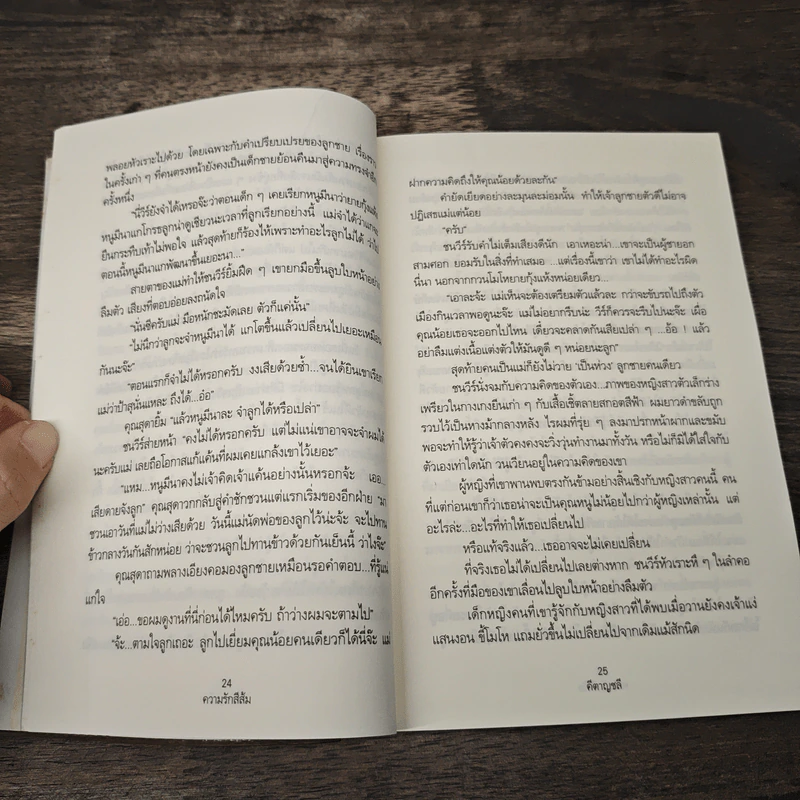 พลอยหัวเราะไปด้วย โดยเฉพาะกับคำเปรียบเปรยของลูกชาย เรื่องราว
ในครั้งเก่า ๆ ที่คนตรงหน้ายังคงเป็นเด็กชายย้อนคืนมาสู่ความทรงจำอีก
ครั้งหนึ่ง
"นี่วีร์ยังจำได้เหรอจ๊ะว่าตอนเด็ก ๆ เคยเรียกหนูมีนาว่ายายกุ้งแห้ง
หนูมีนาแกโกรธลูกน่าดูเชียวนะเวลาที่ลูกเรียกอย่างนี้ แม่จำได้ว่าแก
ยืนกระทืบเท้าไม่พอใจ แล้วสุดท้ายก็ร้องไห้เพราะทำอะไรลูกไม่ได้ ว่าไป
ตอนนี้หนูมีนาแกพัฒนาขึ้นเยอะนา..."
สายตาของแม่ทำให้ชนวีร์ยิ้มฝืด ๆ เขายกมือขึ้นลูบใบหน้าอย่าง
ลืมตัว เสียงที่ตอบอ่อยลงถนัดใจ
"นั่นซีครับแม่ มือหนักชะมัดเลย ตัวก็แค่นั้น"
"ไม่นึกว่าลูกจะจำหนูมีนาได้ แกโตขึ้นแล้วเปลี่ยนไปเยอะเหมือน
กันนะจ๊ะ"
"ตอนแรกก็จำไม่ได้หรอกครับ งงเสียด้วยซ้ำ...จนได้ยินเขาเรียก
แม่ว่าป้าสุนั่นแหละ ถึงได้...อ๋อ"
คุณสุดายิ้ม "แล้วหนูมีนาละ จำลูกได้หรือเปล่า"
ชนวีร์ส่ายหน้า "คงไม่ได้หรอกครับ แต่ไม่แน่เขาอาจจะจำผมได้
นะครับแม่ เลยถือโอกาสแก้แค้นที่ผมเคยแกล้งเขาไว้เยอะ"
"แหม...หนูมีนาคงไม่เจ้าคิดเจ้าแค้นอย่างนั้นหรอกจ้ะ เออ...
เสียดายจังลูก" คุณสุดาวกกลับสู่คำชักชวนแต่แรกเริ่มของอีกฝ่าย "มา
ชวนเอาวันที่แม่ไม่ว่างเสียด้วย วันนี้แม่นัดพ่อของลูกไว้น่ะจ้ะ จะไปทาน
ข้าวกลางวันกันสักหน่อย ว่าจะชวนลูกไปทานข้าวด้วยกันเย็นนี้ ว่าไงจ๊ะ"
คุณสุดาถามพลางเอียงคอมองลูกชายเหมือนรอคำตอบ...ที่รู้แน่
แก่ใจ
"เอ่อ...ขอผมดูงานที่นี่ก่อนได้ไหมครับ ถ้าว่างผมจะตามไป"
"จ้ะ...ตามใจลูกเถอะ ลูกไปเยี่ยมคุณน้อยคนเดียวก็ได้นี่จ๊ะ แม่
24
ความรักสีส้ม
ฝากความคิดถึงให้คุณน้อยด้วยละกัน"
คำยัดเยียดอย่างละมุนละม่อมนั้น ทำให้เจ้าลูกชายตัวดีไม่อาจ
ปฏิเสธแม่แต่น้อย
"ครับ"
ชนวีร์รับคำไม่เต็มเสียงดีนัก เอาเหอะน่า...เขาจะเป็นผู้ชายอก
สามศอก ยอมรับในสิ่งที่ทำเสมอ ...แต่เรื่องนี้เขาว่า เขาไม่ได้ทำอะไรผิด
นี่นา นอกจากกวนโมโหยายกุ้งแห้งหน่อยเดียว...
"เอาละจ้ะ แม่เห็นจะต้องเตรียมตัวแล้วละ กว่าจะขับรถไปถึงตัว
เมืองกินเวลาพอดูนะจ๊ะ แม่ไม่อยากรีบน่ะ วีร์ก็ควรจะรีบไปนะจ๊ะ เผื่อ
คุณน้อยเธอจะออกไปไหน เดี๋ยวจะคลาดกันเสียเปล่า ๆ ...อ้อ ! แล้ว
อย่าลืมแต่งเนื้อแต่งตัวให้มันดูดี ๆ หน่อยนะลูก"
สุดท้ายคนเป็นแม่ก็ยังไม่วาย 'เป็นห่วง' ลูกชายคนเดียว
ชนวีร์นั่งจมกับความคิดของตัวเอง...ภาพของหญิงสาวตัวเล็กร่าง
เพรียวในกางเกงยีนเก่า ๆ กับเสื้อเชิ้ตลายสกอตสีฟ้า ผมยาวดำขลับถูก
รวบไว้เป็นหางม้ากลางหลัง ไรผมที่รุ่ย ๆ ลงมาปรกหน้าผากและขมับ
พอจะทำให้รู้ว่าเจ้าตัวคงคงจะวิ่งวุ่นทำงานมาทั้งวัน หรือไม่ก็มิได้ใส่ใจกับ
ตัวเองเท่าใดนัก วนเวียนอยู่ในความคิดของเขา
ผู้หญิงที่เขาพานพบตรงกันข้ามอย่างสิ้นเชิงกับหญิงสาวคนนี้ คน
ที่แต่ก่อนเขาก็ว่าเธอน่าจะเป็นคุณหนูไม่น้อยไปกว่าผู้หญิงเหล่านั้น แต่
อะไรล่ะ...อะไรที่ทำให้เธอเปลี่ยนไป
หรือแท้จริงแล้ว...เธออาจจะไม่เคยเปลี่ยน
ที่จริงเธอไม่ได้เปลี่ยนไปเลยต่างหาก ชนวีร์หัวเราะหึ ๆ ในลำคอ
อีกครั้งที่มือของเขาเลื่อนไปลูบใบหน้าอย่างลืมตัว
เด็กหญิงคนที่เขารู้จักกับหญิงสาวที่ได้พบเมื่อวานยังคงเจ้าแง่
แสนงอน ขี้โมโห แถมยั่วขึ้นไม่เปลี่ยนไปจากเดิมแม้สักนิด
25
คีตาญชลี